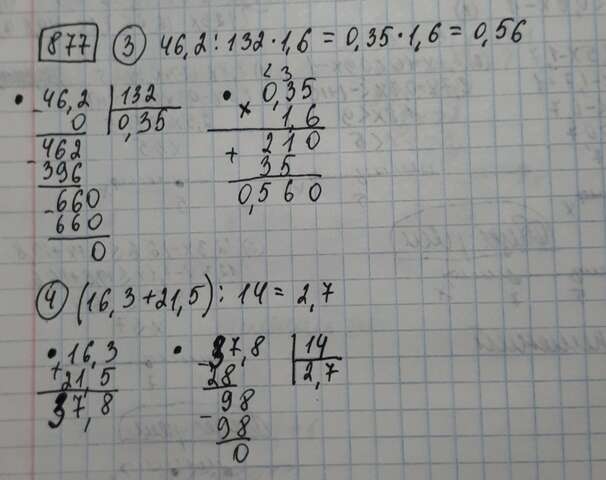 877 3 46,2 : 132 · 1,6 = 0,35 · 1,6 = 0,56
• - 46,2 | 132
0 | 0,35
462
- 396
- 660
660
0
2 3
• × 0,35
1,6
+ 210
35
0,560
4 (16,3 + 21,5) : 14 = 2,7
• + 16,3
21,5
37,8
• - 37,8 | 14
28 | 2,7
- 98
98
0